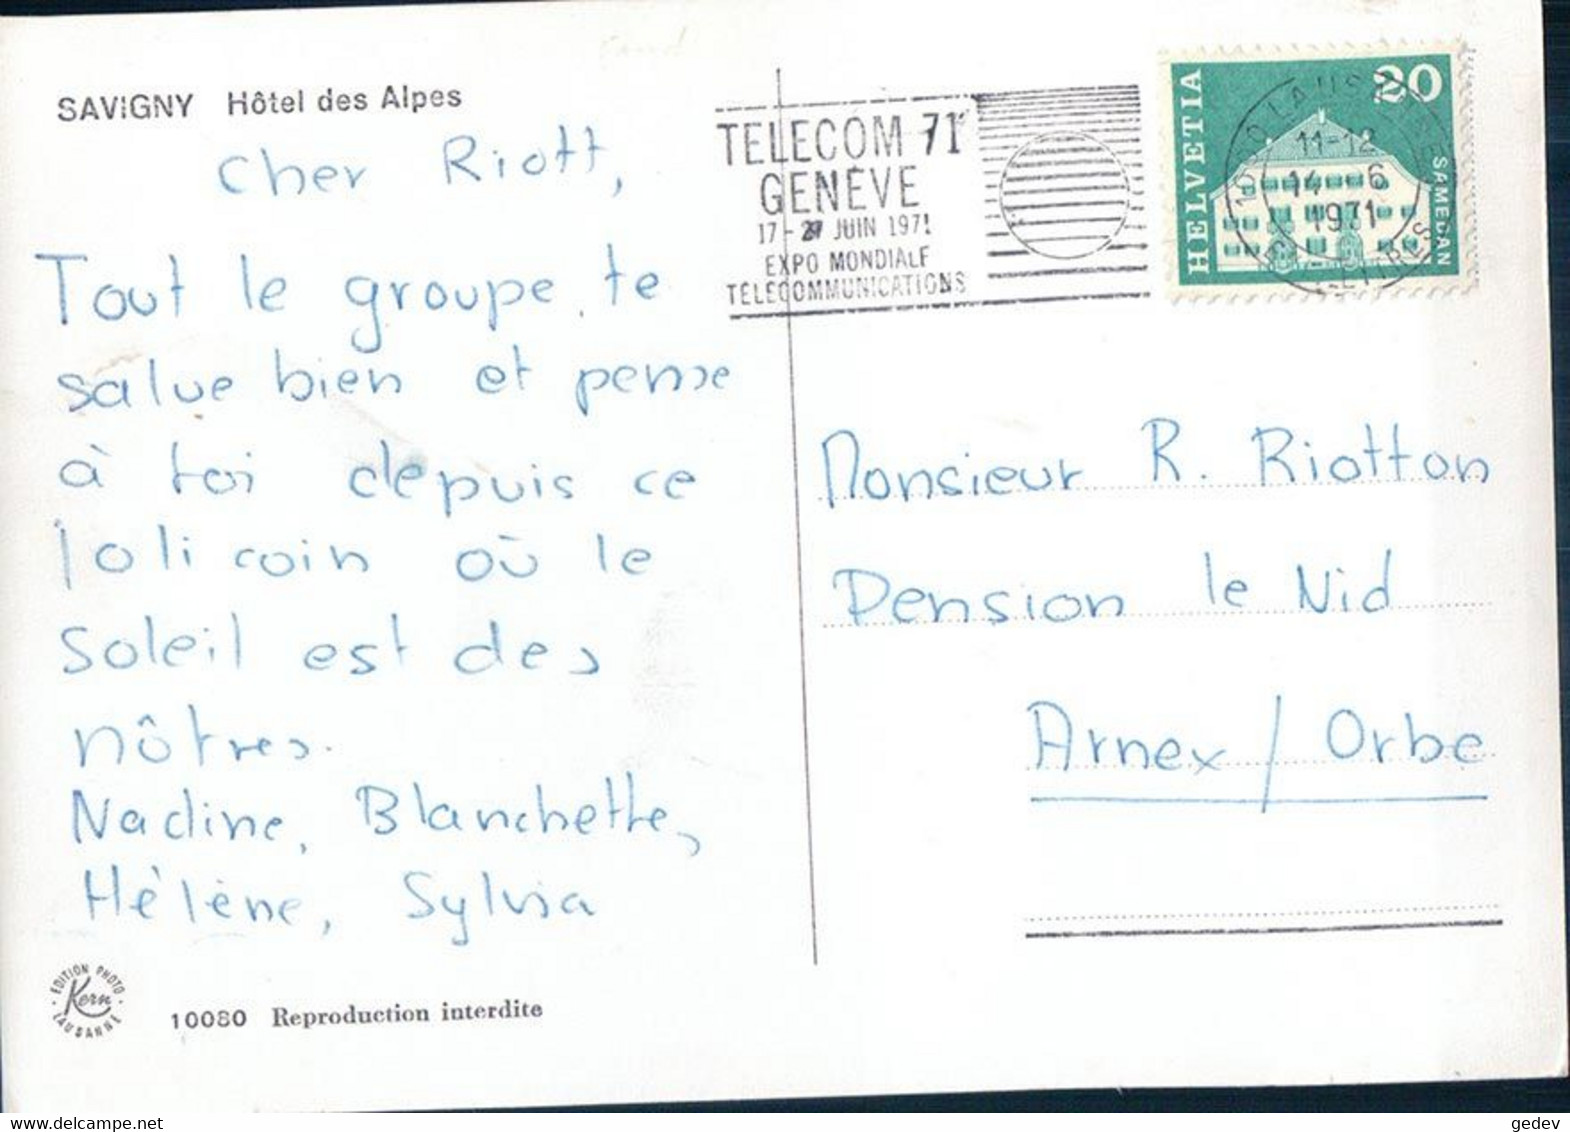 SAVIGNY Hôtel des Alpes
Cher Riott,
Tout le groupe te
salue bien et pense
à toi depuis ce
joli coin où le
soleil est des
nôtres.
Nadine, Blanchette,
Hélène, Sylvia
EDITION PHOTO
Kern
LAUSANNE
10080 Reproduction interdite
TELECOM 71
GENÈVE
17-27 JUIN 1971
EXPO MONDIALE
TÉLÉCOMMUNICATIONS
HELVETIA
20
SAMEDAN
LAUSANNE
11-12
14 6
1971
Monsieur R. Riotton
Pension le Nid
Arnex / Orbe
gedev